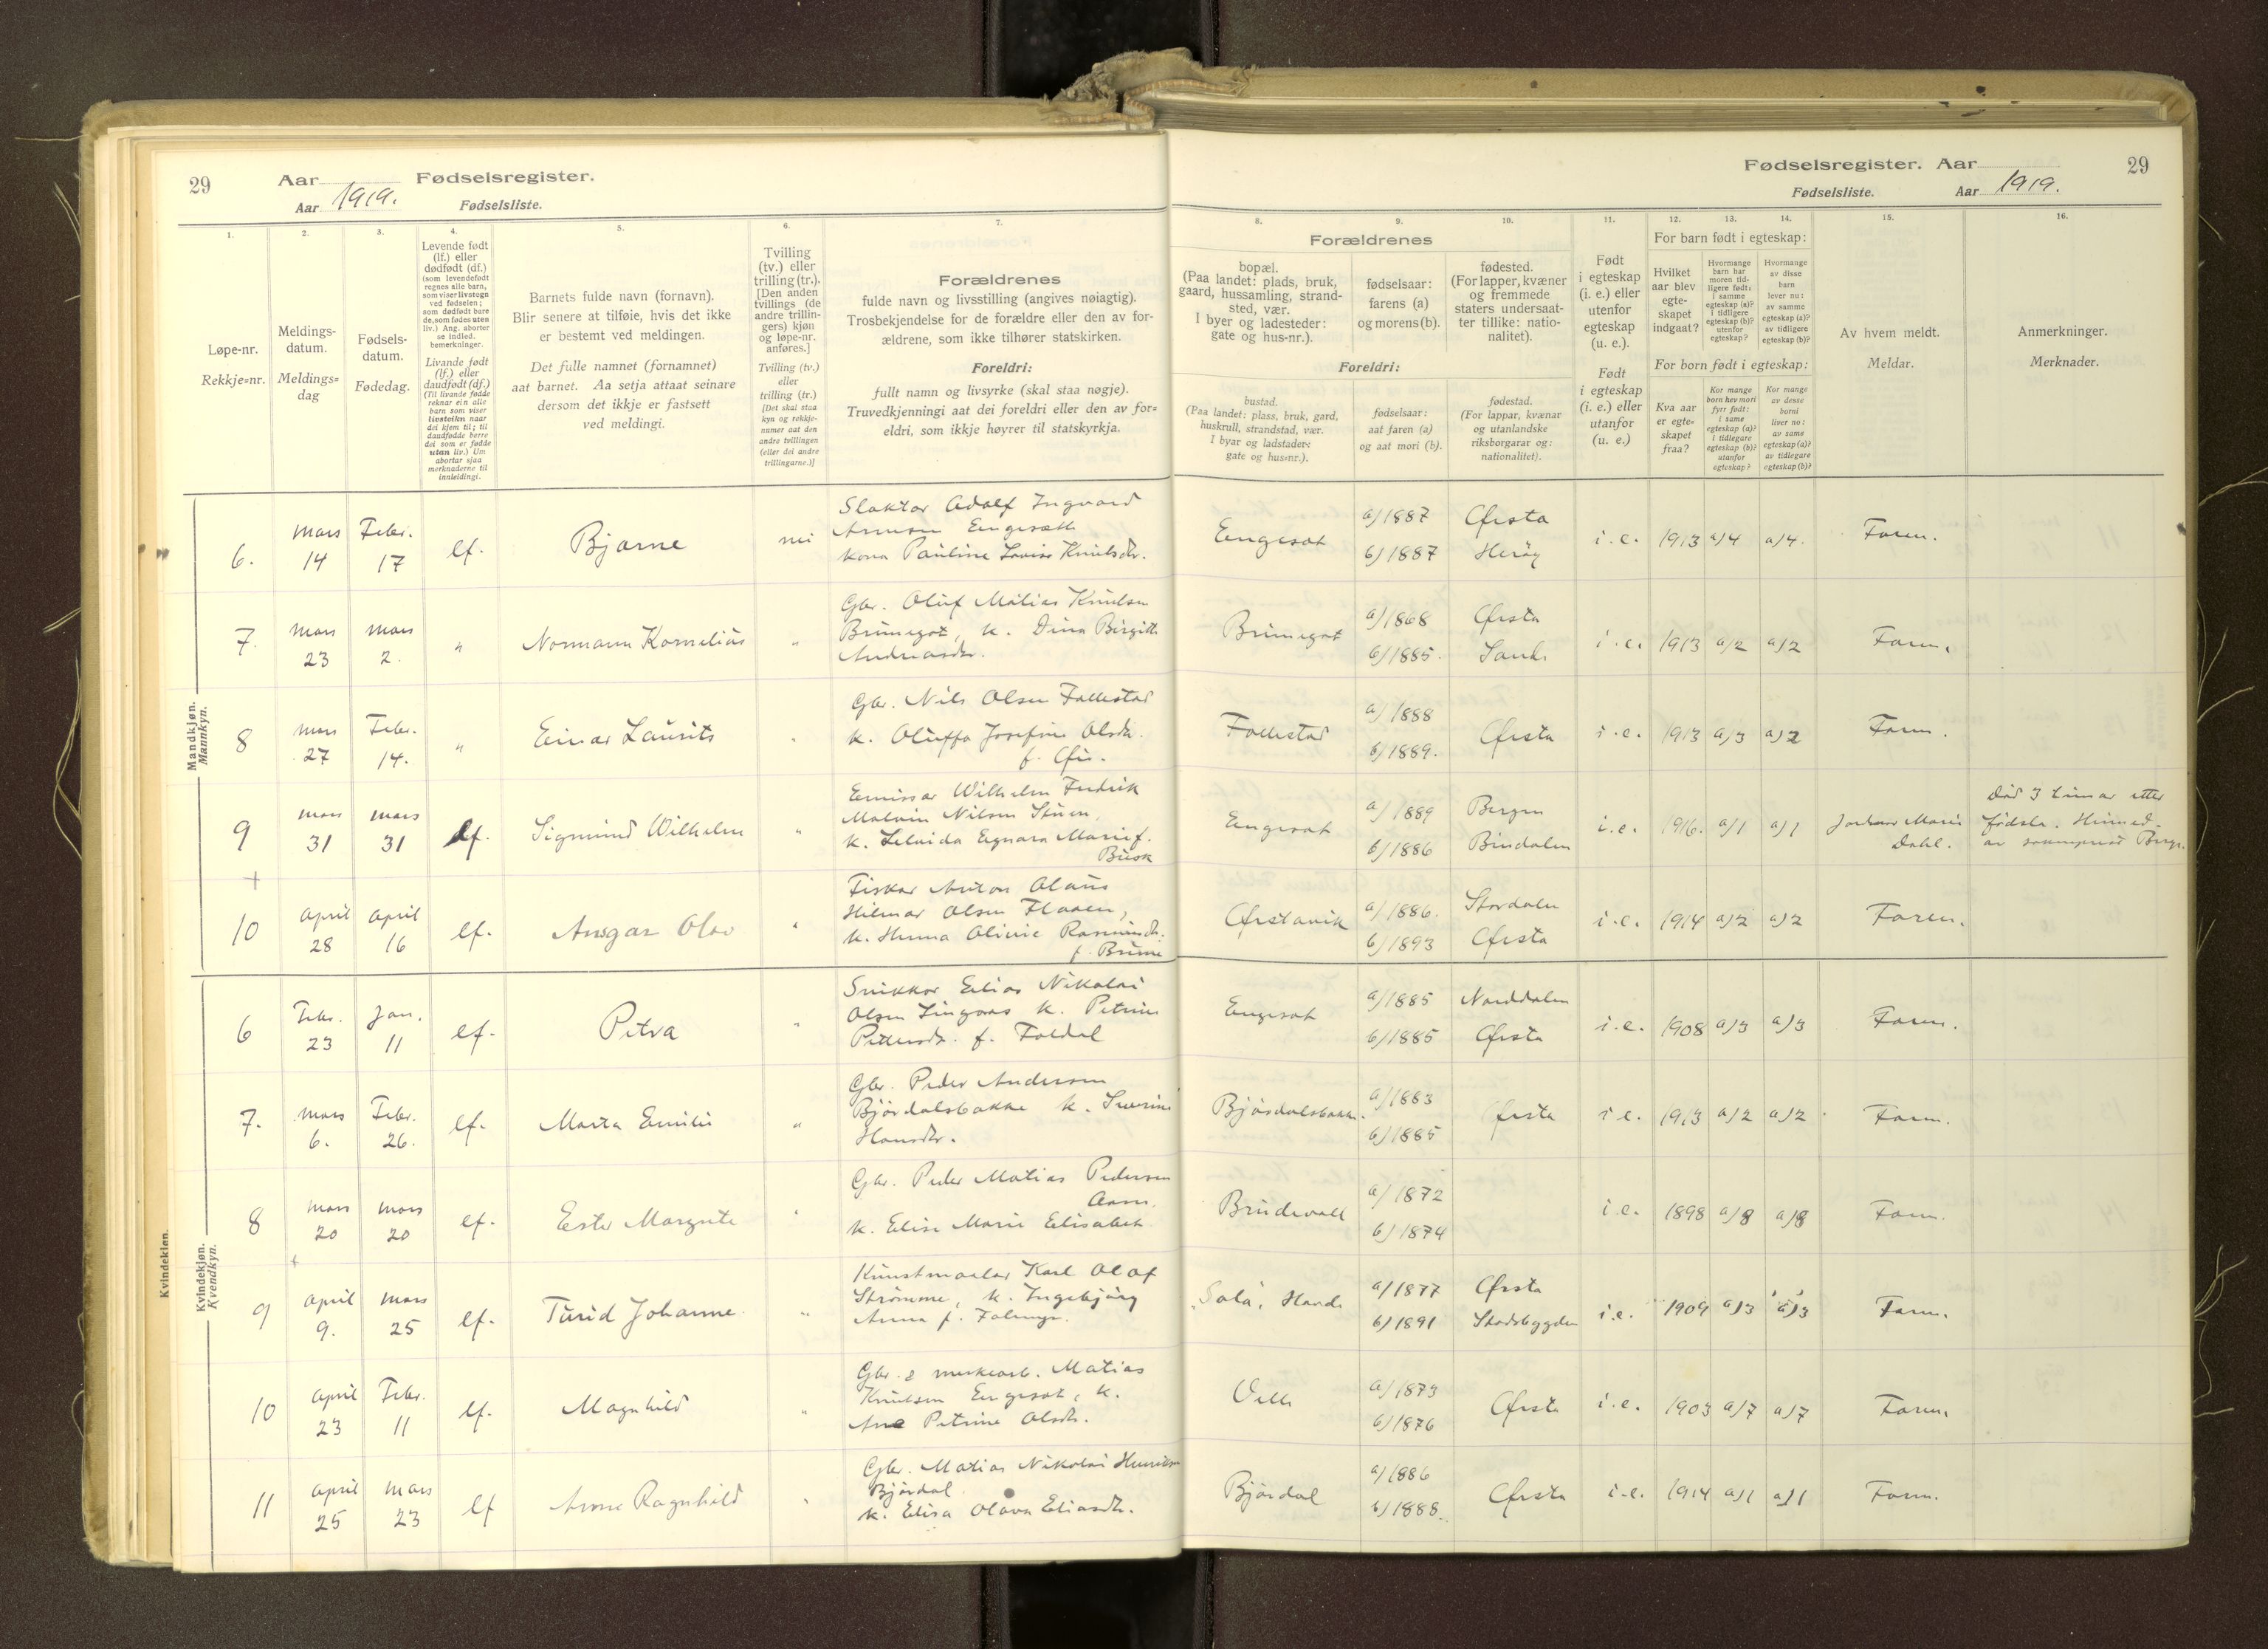 29
Aar 1919. Fødselsregister.
Aar Fødselsliste.
1.
2.
3.
4.
5.
6.
7.
Løpe-nr.
Rekkje=nr.
Meldings-
datum.
Meldings=
dag
Fødsels-
datum.
Fødedag.
Levende født
(lf.) eller
dødfødt (df.)
(som levendefødt
regnes alle barn,
som viser livstegn
ved fødselen;
som dødfødt bare
de, som fødes uten
liv.) Ang. aborter
se indled.
bemerkninger.
Livande født
(lf.) eller
daudfødt (df.)
(Til livande fødde
reknar ein alle
barn som viser
livsteikn naar
dei kjem til; til
daudfødde berre
dei som er fødde
utan liv.) Um
abortar sjaa
merknaderne til
innleidingi.
Barnets fulde navn (fornavn).
Blir senere at tilføie, hvis det ikke
er bestemt ved meldingen.
Det fulle namnet (fornamnet)
aat barnet. Aa setja attaat seinare
dersom det ikkje er fastsett
ved meldingi.
Tvilling
(tv.) eller
trilling (tr.).
[Den anden
tvillings (de
andre trillin-
gers) kjøn
og løpe-nr.
anføres.]
Tvilling (tv.)
eller
trilling (tr.)
[Det skal staa
kyn og rekkje-
numer aat den
andre tvillingen
(eller dei andre
trillingarne.)]
Forældrenes
fulde navn og livsstilling (angives nøiagtig).
Trosbekjendelse for de forældre eller den av for-
ældrene, som ikke tilhører statskirken.
Foreldri:
fullt namn og livsyrke (skal staa nøgje).
Truvedkjenningi aat dei foreldri eller den av for=
eldri, som ikkje høyrer til statskyrkja.
Fødselsregister. Aar 1919.
29
Fødselsliste. Aar
8.
9.
10.
11.
12.
13.
14.
15.
16.
Forældrenes
bopæl.
(Paa landet: plads, bruk,
gaard, hussamling, strand-
sted, vær.
I byer og ladesteder:
gate og hus-nr.).
fødselsaar:
farens (a)
og morens (b).
fødested.
(For lapper, kvæner
og fremmede
staters undersaat-
ter tillike: natio-
nalitet).
Foreldri:
bustad.
(Paa landet: plass, bruk, gard,
huskrull, strandstad, vær.
I byar og ladstader:
gate og hus=nr.).
fødselsaar:
aat faren (a)
og aat mori (b).
fødestad.
(For lappar, kvænar
og utanlandske
riksborgarar og:
nationalitet).
Født
i egteskap
(i. e.) eller
utenfor
egteskap
(u. e.).
Født
i egteskap
(i. e.) eller
utanfor
(u. e.)
For barn født i egteskap:
Hvilket
aar blev
egte-
skapet
indgaat?
Hvormange
barn har
moren tid-
ligere født:
i samme
egteskap (a)?
i tidligere
egteskap (b)?
utenfor
egteskap?
Hvormange
av disse
barn
lever nu:
av samme
egteskap (a)?
av tidligere
egteskap (b)?
For born født i egteskap:
Kva aar
er egte-
skapet
fraa?
Kor mange
born hev mori
fyrr født:
i same
egteskap (a)?
i tidlegare
egteskap (b)?
utanfor
egteskap?
Kor mange
av desse
borni
liver no:
av same
egteskap (a)?
av tidlegare
egteskap (b)?
Av hvem meldt.
Meldar.
Anmerkninger.
Merknader.
Mandkjøn.
Mannkyn.
6. mars 14 Febr. 17 lf. Bjarne nei
Slaktar Adolf Ingvard
Arnesen Engesæth
kona Pauline Lovise Knutsdtr.
Engeset a) 1887 Ørsta b) 1887 Herøy i.e. 1913 a)4 a)4. Faren.
7. mars 23 mars 2. " Normann Kornelius "
Gbr. Oluf Matias Knutsen
Brunegot, k. Dina Birgitte
Andreasdtr.
a) 1868 Ørsta b) 1885. Sande i.e. 1913 a)2 a)2 Faren.
8 mars 27 Febr. 14. " Einar Laurits "
Gbr. Nils Olsen Follestad
k. Oluffa Josefine Olsdtr.
Follestad a) 1888 b) 1889. Ørsta i.e. 1913 a)3 a)2 Faren.
9 mars 31 mars 31 lf. Sigmund Wilhelm "
Emissar Wilhelm Fredrik
Nilsen
Marie f.
Engeset a) 1889 Bergen b) 1886 Bindalen i.e. 1916. a)1 a)1 Marie
Dahl.
Død 3 timar etter
+
10 april 28 april 16 lf. Ansgar Olav "
Fiskar Anton Olaus
Hilmar Olsen
Ørstavik a) 1886. Stordalen b) 1893 Ørsta i.e. 1914 a)2 a)2 Faren.
Kvindekjøn.
Kvindekjøn.
Kvendkyn.
6 Febr. 23 Jan. 11 lf. Petra "
Snikkar Elias Nikolai
Olsen k. Petrine
Engeset a) 1885 Norddalen b) 1885 Ørsta i.e. 1908 a)3 a)3 Faren.
7. mars 6. Febr. 26. lf. Marta Emilie "
Gbr. Peder Andersen
Bjørdalsbakke k. Severine
Hansdtr.
Bjørdalsbakke. a) 1883 b) 1885 Ørsta i.e. 1913 a)2 a)2 Faren.
8 mars 20 mars 20 lf. Ester Margrete "
Gbr. Peder Matias Pedersen
Aam.
k. Elise Marie Elisabet
a) 1872 b) 1874 i.e. 1898 a)8 a)8 Faren.
+
9 april 9. mars 25 lf. Turid Johanne. "
Kunstmaalar Karl Olaf
Strømme, k. Ingebjørg
Anna f.
a) 1877 Ørsta b) 1891 Stadsbygden i.e. 1909 a)3 a)3 Faren.
10 april 23 Febr. 11 lf. Magnhild "
Matias
Knutsen Engeset, k.
Ane Petrine Olsdtr.
Velle a) 1873 b) 1876 Ørsta i.e. 1903 a)7 a)7 Faren.
11 april 25 mars 23 lf Anne Ragnhild "
Gbr. Matias Nikolai Henriksen
Bjørdal
k. Elisa Olava Eliasdtr.
Bjørdal a) 1886 b) 1888. Ørsta i.e. 1914 a)1 a)1 Faren.